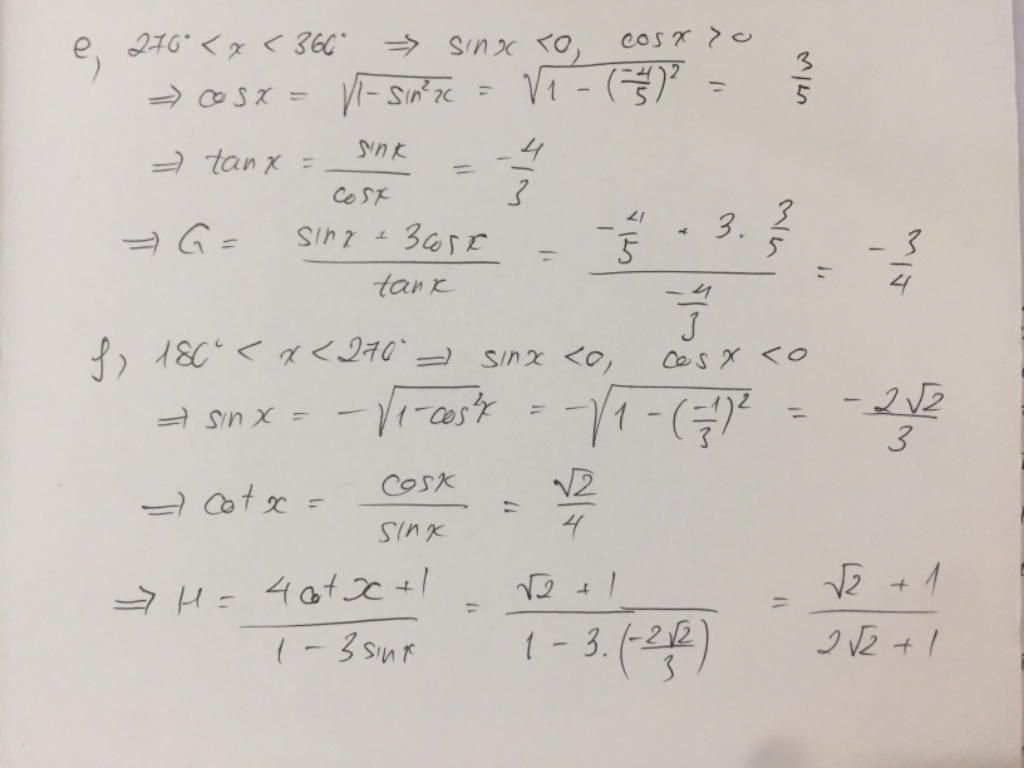 e, 270° < x < 360° ⇒ sinx < 0, cosx > 0
⇒ cosx = √(1-sin²x) = √(1-(-4/5)²) = 3/5
⇒ tanx = sinx/cosx = -4/3
⇒ G = (sinx + 3cosx)/tanx = (-4/5 + 3.3/5)/(-4/3) = -3/4
f, 180° < x < 270° ⇒ sinx < 0, cosx < 0
⇒ sinx = -√(1-cos²x) = -√(1-(-1/3)²) = -2√2/3
⇒ cotx = cosx/sinx = √2/4
⇒ H = (4cotx+1)/(1-3sinx) = (√2+1)/(1-3.(-2√2/3)) = (√2+1)/(2√2+1)